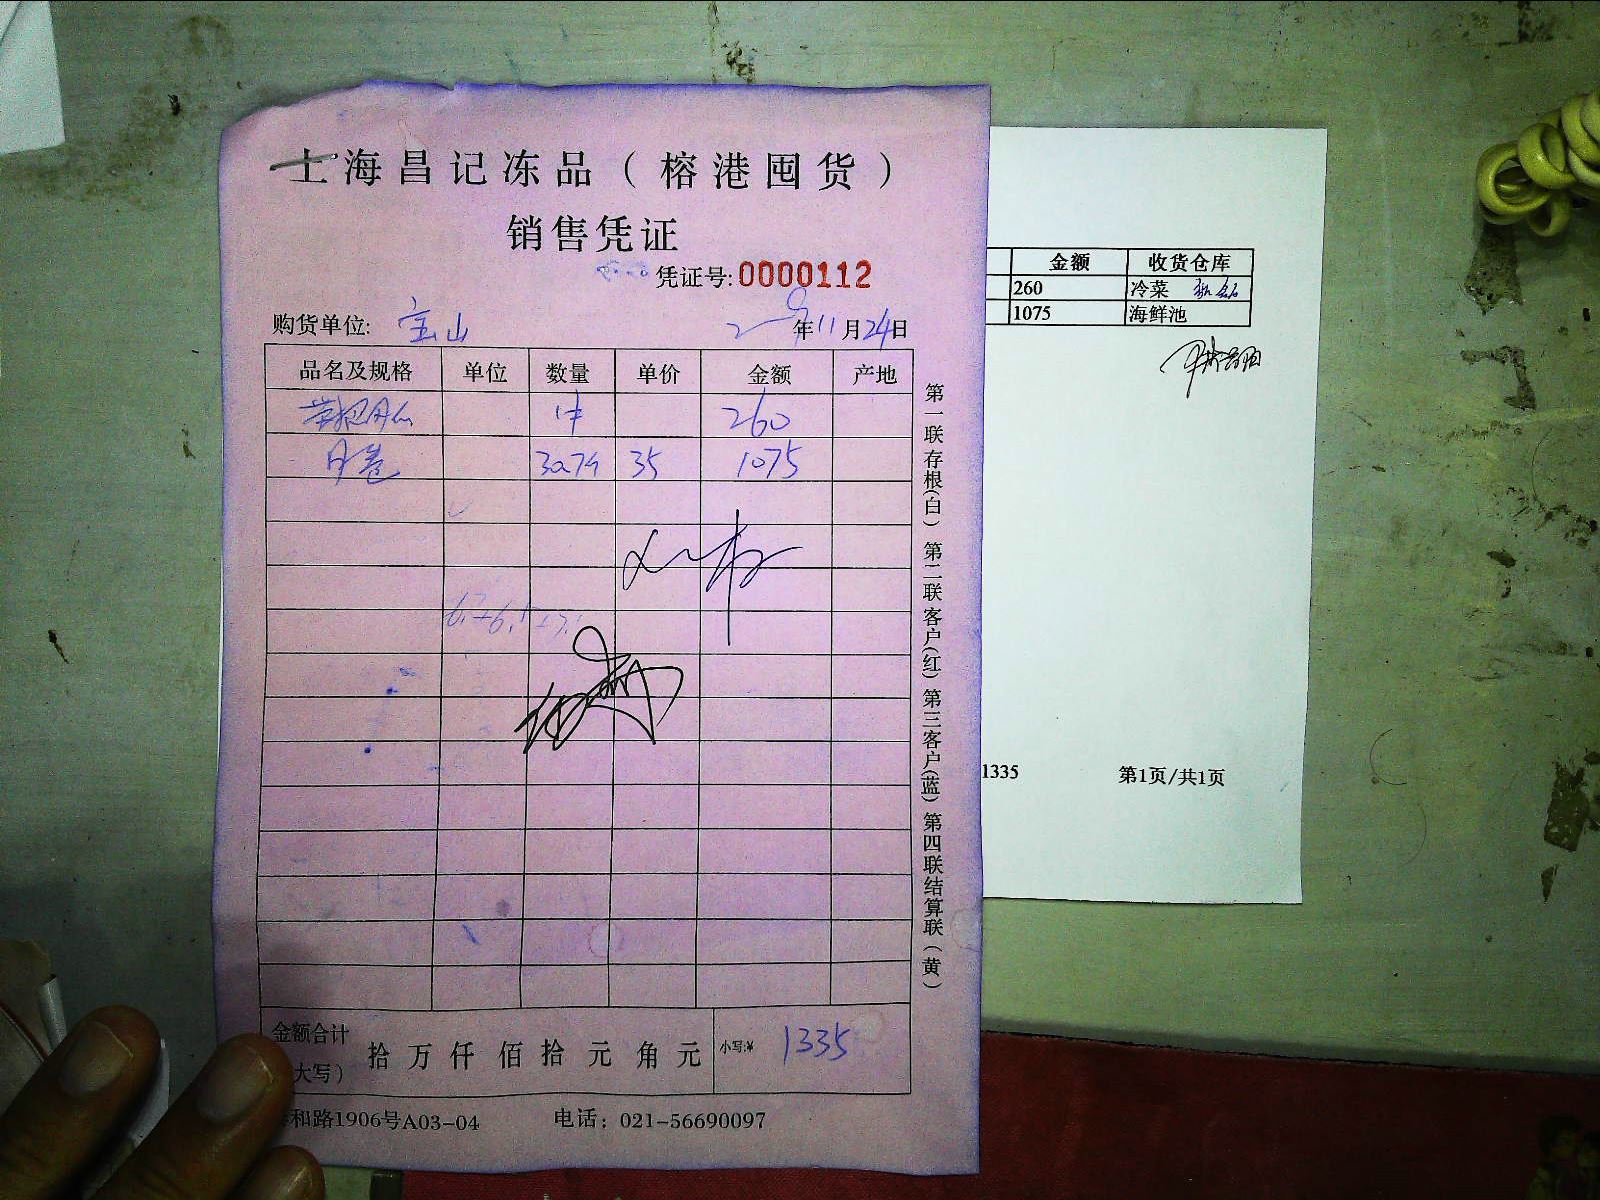 上海昌记冻品（榕港囤货）
销售凭证
凭证号:0000112
购货单位: 宝山 年11月24日
品名及规格 单位 数量 单价 金额 产地
260
35 1075
金额合计 拾万仟佰拾元角元 小写:¥ 1335
大写）
和路1906号A03-04 电话：021-56690097
第一联存根(白）第二联客户(红）第三客户(蓝）第四联结算联（黄）
金额 收货仓库
260 冷菜
1075 海鲜池
1335 第1页/共1页